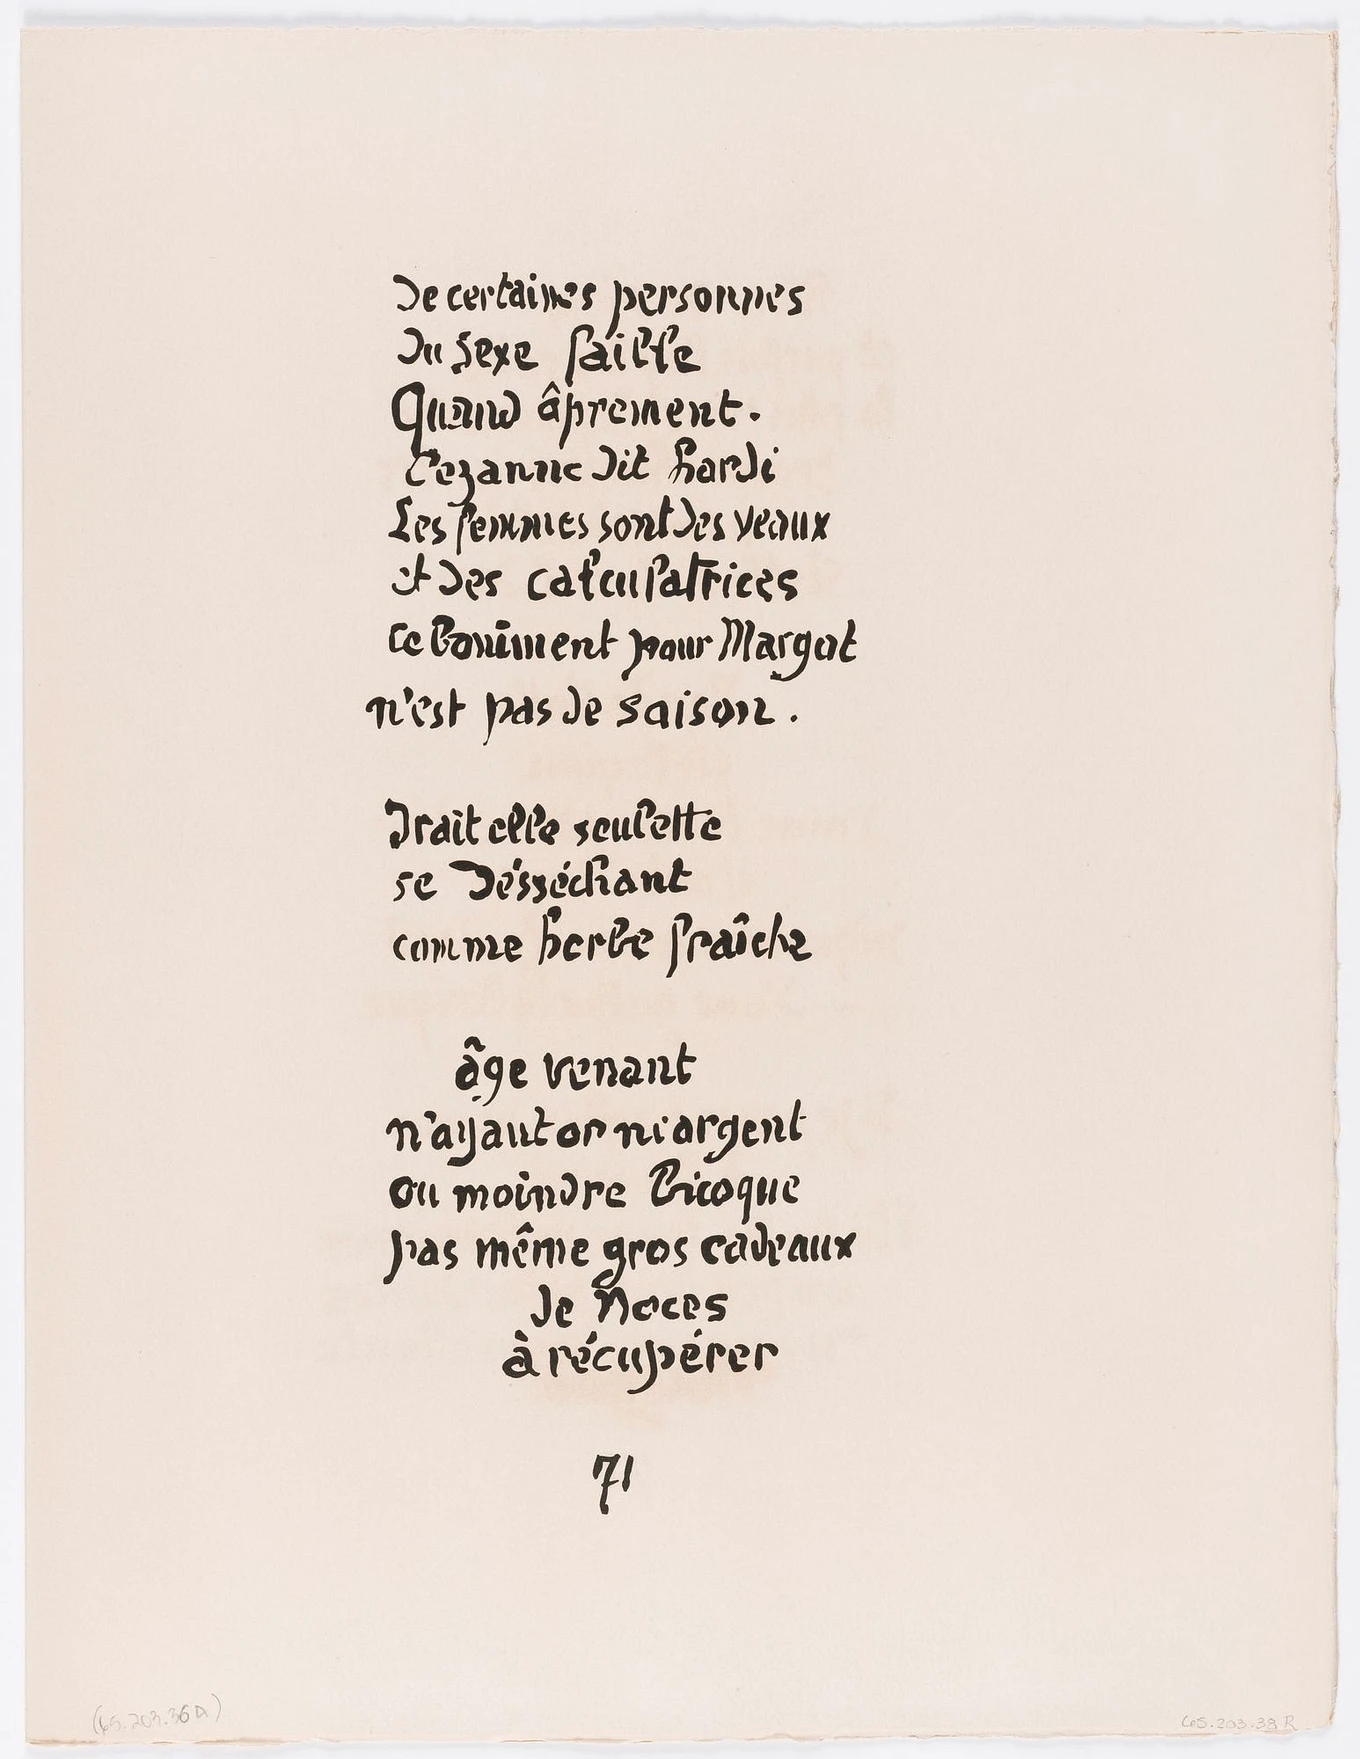 De certaines personnes
Du sexe faible
Quand âprement.
Cezanne dit hardi
Les femmes sont des veaux
et des calculatrices
ce boniment pour Margot
n'est pas de saison.
Irait elle seulette
se désséchant
comme herbe fraîche
âge venant
n'ayant or ni argent
ou moindre bicoque
pas même gros cadeaux
de Noces
à récupérer
71
(65.203.36 A)
65.203.38 R